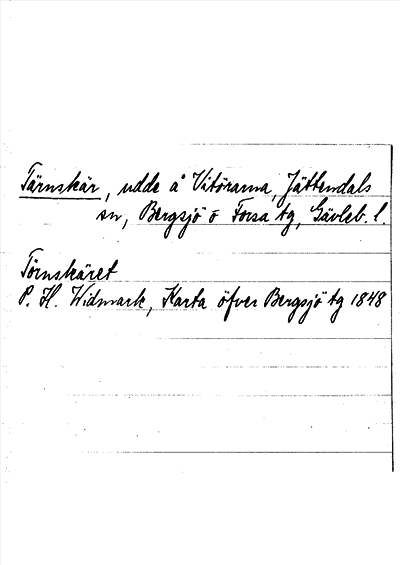 Tärnskär, udde å Vitörarna, Jättendals
sn, Bergsjö o Forsa tg, Gävleb. l.
Törnskäret
P. H. Widmark, Karta öfver Bergsjö tg 1848